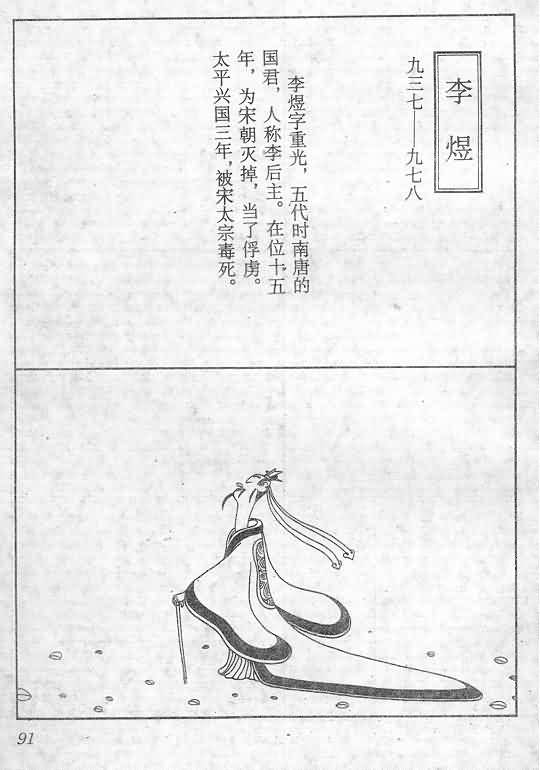 李煜
九三七——九七八
李煜字重光，五代时南唐的
国君，人称李后主。在位十五
年，为宋朝灭掉，当了俘虏。
太平兴国三年，被宋太宗毒死。
91